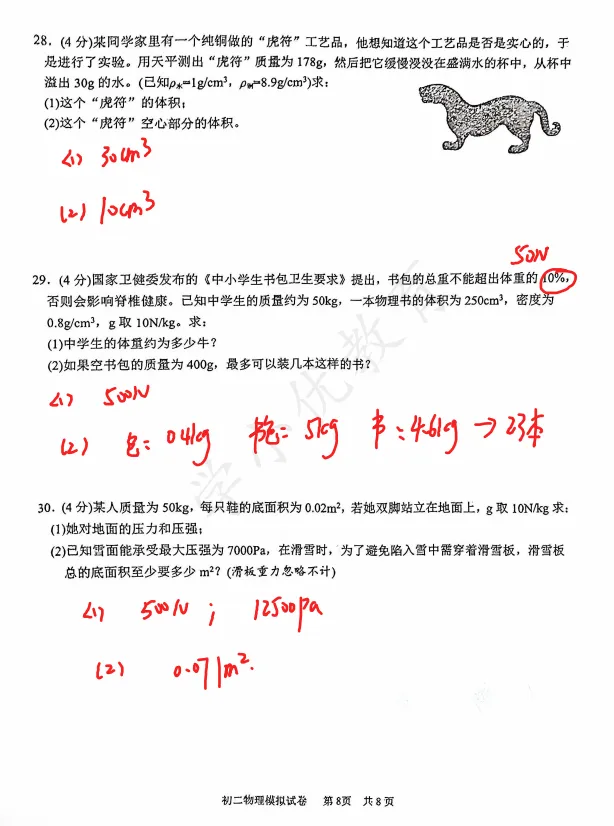 28.(4 分)某同学家里有一个纯铜做的“虎符”工艺品，他想知道这个工艺品是否是实心的，于
是进行了实验。用天平测出“虎符”质量为178g，然后把它缓慢浸没在盛满水的杯中，从杯中
溢出 30g 的水。(已知ρ水=1g/cm³，ρ铜=8.9g/cm³)求：
(1)这个“虎符”的体积；
(2)这个“虎符”空心部分的体积。
(1) 30cm³
(2) 10cm³
50N
29.(4 分)国家卫健委发布的《中小学生书包卫生要求》提出，书包的总重不能超出体重的10%，
否则会影响脊椎健康。已知中学生的质量约为50kg，一本物理书的体积为250cm³，密度为
0.8g/cm³，g 取 10N/kg。求：
(1)中学生的体重约为多少牛？
(2)如果空书包的质量为 400g，最多可以装几本这样的书？
(1) 500N
(2) 包：0.4kg 书包：5kg 书：4.6kg → 23本
学小优教育
30.(4 分)某人质量为 50kg，每只鞋的底面积为 0.02m²，若她双脚站立在地面上，g 取 10N/kg 求：
(1)她对地面的压力和压强；
(2)已知雪面能承受最大压强为 7000Pa，在滑雪时，为了避免陷入雪中需穿着滑雪板，滑雪板
总的底面积至少要多少 m²？(滑板重力忽略不计)
(1) 500N ； 12500Pa
(2) 0.071m².
初二物理模拟试卷 第8页 共8页